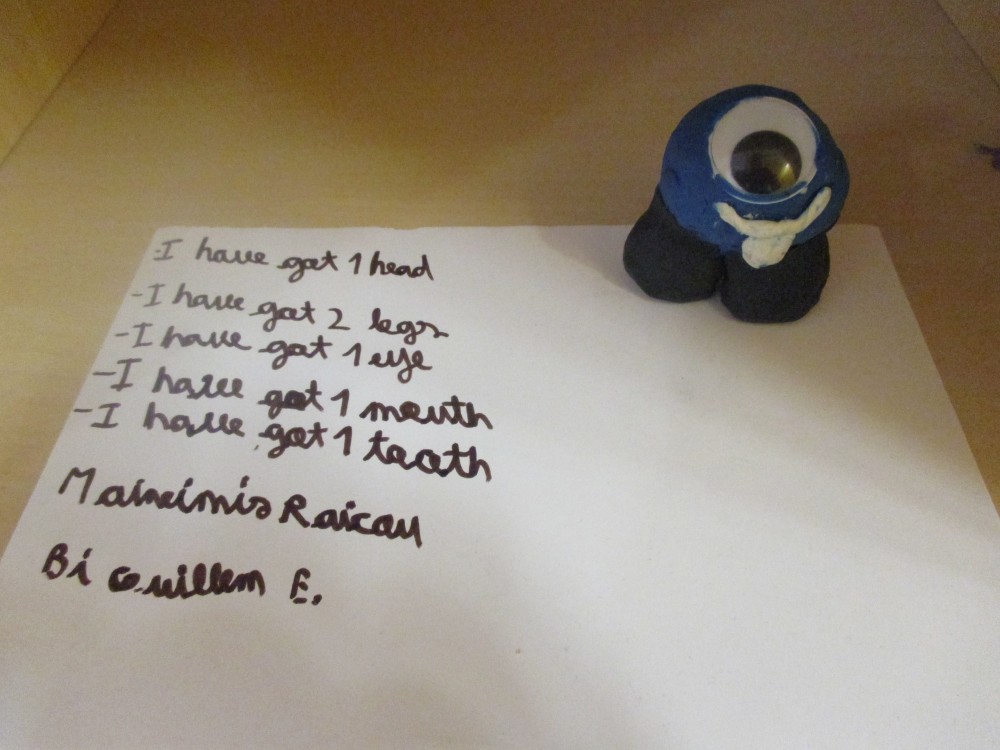 -I have got 1 head
-I have got 2 legs
-I have got 1 eye
-I have got 1 mouth
-I have got 1 tooth
Raicau
Bi Guillem E.